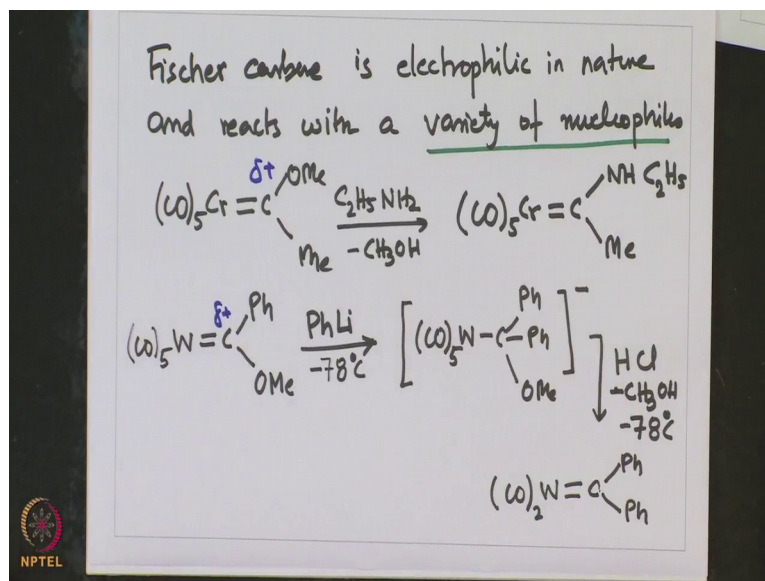 Fischer carbene is electrophilic in nature
and reacts with a variety of nucleophiles
(CO)5Cr=C δ+ OMe Me C2H5NH2 -CH3OH (CO)5Cr=C NHC2H5 Me
(CO)5W=C δ+ Ph OMe PhLi -78°C [(CO)5W-C-Ph Ph OMe]-
HCl
-CH3OH
-78°C
(CO)2W=C Ph Ph
NPTEL